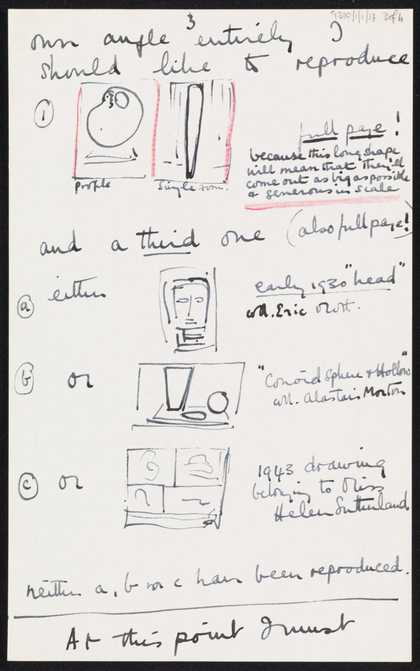 3
own angle entirely I
should like to reproduce
①
full page!
because this long shape
will mean that they'd
come out as big as possible
& generous in scale
profile
Single form.
and a third one (also full page!)
ⓐ either
early 1930 "head"
coll. Eric
ⓑ or
"Conoid Sphere & Hollow"
coll. Alastair Morton
ⓒ or
1943 drawing
belonging to Miss
Helen Sutherland
neither a, b nor c have been reproduced.
At this point I must